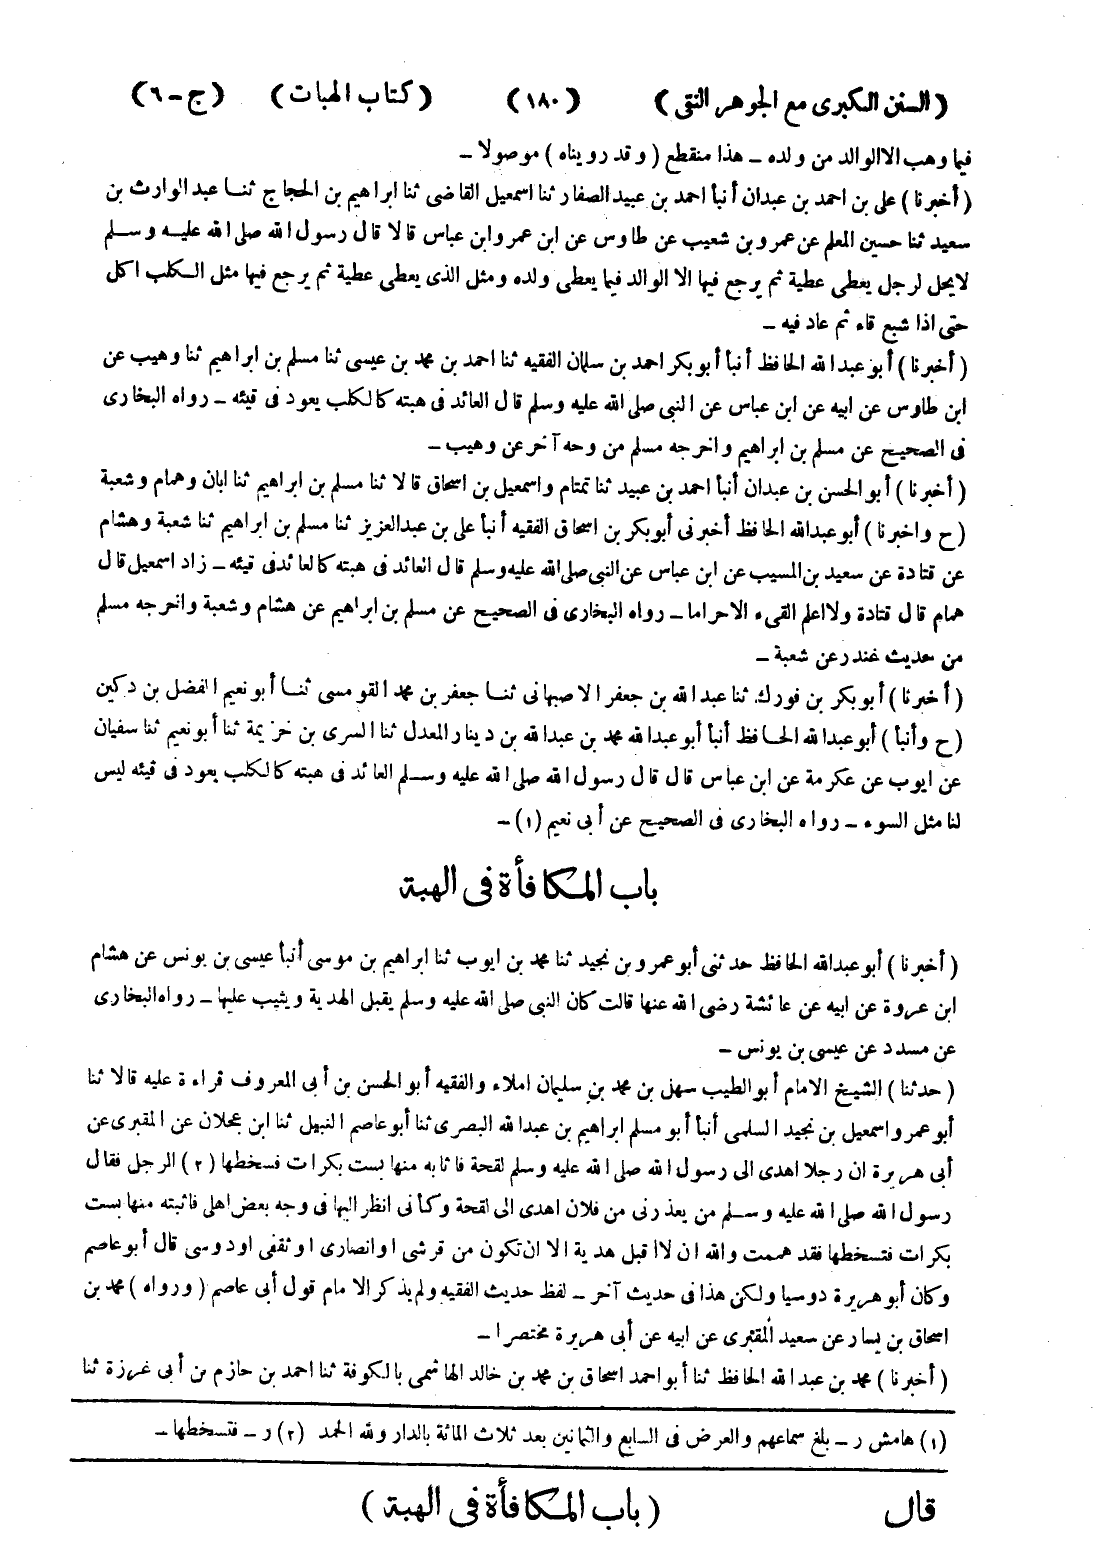 (السنن الكبرى مع الجوهر النقى) (١٨٠) (كتاب الهبات) (ج-٦)
فيما وهب الاالوالد من ولده - هذا منقطع (وقد رويناه) موصولا -
(أخبرنا) على بن احمد بن عبدان أنبأ احمد بن عبيد الصفار ثنا اسمعيل القاضى ثنا ابراهيم بن الحجاج ثنا عبد الوارث بن
سعيد ثنا حسين المعلم عن عمرو بن شعيب عن طاوس عن ابن عمر وابن عباس قالا قال رسول الله صلى الله عليه وسلم
لايحل لرجل يعطى عطية ثم يرجع فيها الا الوالد فيما يعطى ولده ومثل الذى يعطى عطية ثم يرجع فيها مثل الكلب اكل
حتى اذا شبع قاء ثم عاد فيه -
(أخبرنا) أبو عبد الله الحافظ أنبأ أبو بكر احمد بن سلمان الفقيه ثنا احمد بن محمد بن عيسى ثنا مسلم بن ابراهيم ثنا وهيب عن
ابن طاوس عن ابيه عن ابن عباس عن النبى صلى الله عليه وسلم قال العائد فى هبته كالكلب يعود فى قيئه - رواه البخارى
فى الصحيح عن مسلم بن ابراهيم واخرجه مسلم من وجه آخر عن وهيب -
(أخبرنا) أبو الحسن بن عبدان أنبأ احمد بن عبيد ثنا تمتام واسمعيل بن اسحاق قالا ثنا مسلم بن ابراهيم ثنا ابان وهمام وشعبة
(ح واخبرنا) أبو عبدالله الحافظ أخبرنى أبوبكر بن اسحاق الفقيه أنبأ على بن عبدالعزيز ثنا مسلم بن ابراهيم ثنا شعبة وهشام
عن قتادة عن سعيد بن المسيب عن ابن عباس عن النبى صلى الله عليه وسلم قال العائد فى هبته كالعائد فى قيئه - زاد اسمعيل قال
همام قال قتادة ولااعلم القىء الاحراما - رواه البخارى فى الصحيح عن مسلم بن ابراهيم عن هشام وشعبة واخرجه مسلم
من حديث غندر عن شعبة -
(أخبرنا) أبوبكر بن فورك ثنا عبد الله بن جعفر الاصبهانى ثنا جعفر بن محمد القومسى ثنا أبو نعيم الفضل بن دكين
(ح وأنبأ) أبو عبدالله الحافظ أنبأ أبو عبدالله محمد بن عبدالله بن دينار المعدل ثنا السرى بن خزيمة ثنا أبو نعيم ثنا سفيان
عن ايوب عن عكرمة عن ابن عباس قال قال رسول الله صلى الله عليه وسلم العائد فى هبته كالكلب يعود فى قيئه ليس
لنا مثل السوء - رواه البخارى فى الصحيح عن أبى نعيم (١) -
باب المكافأة فى الهبة
(أخبرنا) أبو عبدالله الحافظ حدثنى أبو عمرو بن نجيد ثنا محمد بن ايوب ثنا ابراهيم بن موسى أنبأ عيسى بن يونس عن هشام
ابن عروة عن ابيه عن عائشة رضى الله عنها قالت كان النبى صلى الله عليه وسلم يقبل الهدية ويثيب عليها - رواه البخارى
عن مسدد عن عيسى بن يونس -
(حدثنا) الشيخ الامام أبو الطيب سهل بن محمد بن سليمان املاء والفقيه أبو الحسن بن أبى المعروف قراءة عليه قالا ثنا
أبو عمرو اسمعيل بن نجيد السلمى أنبأ أبو مسلم ابراهيم بن عبدالله البصرى ثنا أبو عاصم النبيل ثنا ابن عجلان عن المقبرى عن
أبى هريرة ان رجلا اهدى الى رسول الله صلى الله عليه وسلم لقحة فاثابه منها بست بكرات فسخطها (٢) الرجل فقال
رسول الله صلى الله عليه وسلم من يعذرنى من فلان اهدى الى لقحة وكأنى انظر اليها فى وجه بعض اهلى فاثبته منها بست
بكرات فتسخطها فقد هممت والله ان لااقبل هدية الا ان تكون من قرشى اوانصارى اوثقفى اودوسى قال أبو عاصم
وكان أبو هريرة دوسيا ولكن هذا فى حديث آخر - لفظ حديث الفقيه ولم يذكر الامام قول أبى عاصم (ورواه) محمد بن
اسحاق بن يسار عن سعيد المقبرى عن ابيه عن أبى هريرة مختصرا -
(أخبرنا) محمد بن عبد الله الحافظ ثنا أبو احمد اسحاق بن محمد بن خالد الهاشمى بالكوفة ثنا احمد بن حازم بن أبى غرزة ثنا
(١) هامش ر - بلغ سماعهم والعرض فى السابع والثمانين بعد ثلاث المائة بالدار ولله الحمد (٢) ر - فتسخطها -
قال (باب المكافأة فى الهبة)